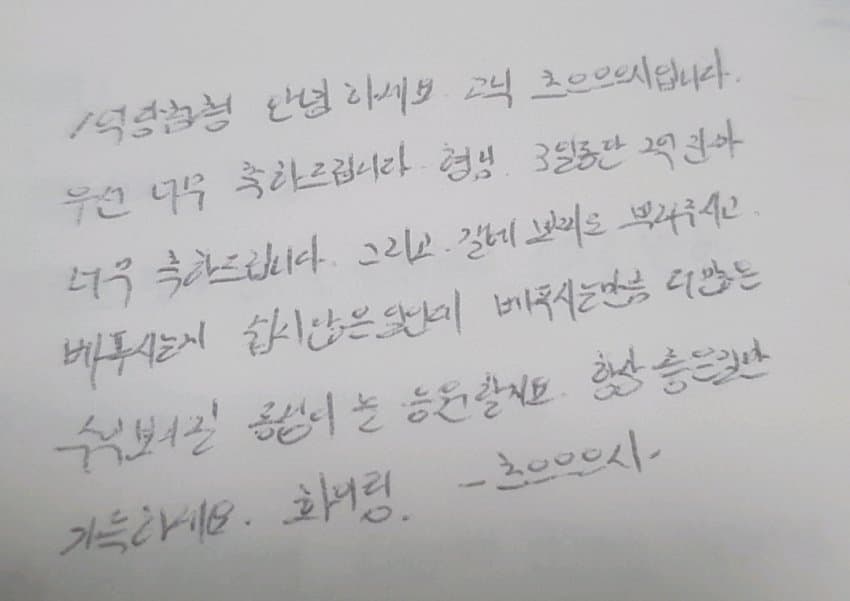 1억방춤형 안녕하세요 고닉 츠으으으시입니다.
우선 너무 축하드립니다. 형님. 3일동안 2억
너무 축하드립니다. 그리고 갈에 보끼도 뿌려주시고
베푸시는게 쉽지않은일인데 베푸시는만큼 더많은
수익보시길 응원할게요. 항상 좋은일만
가득하세요. 화이링. -츠으으으시-